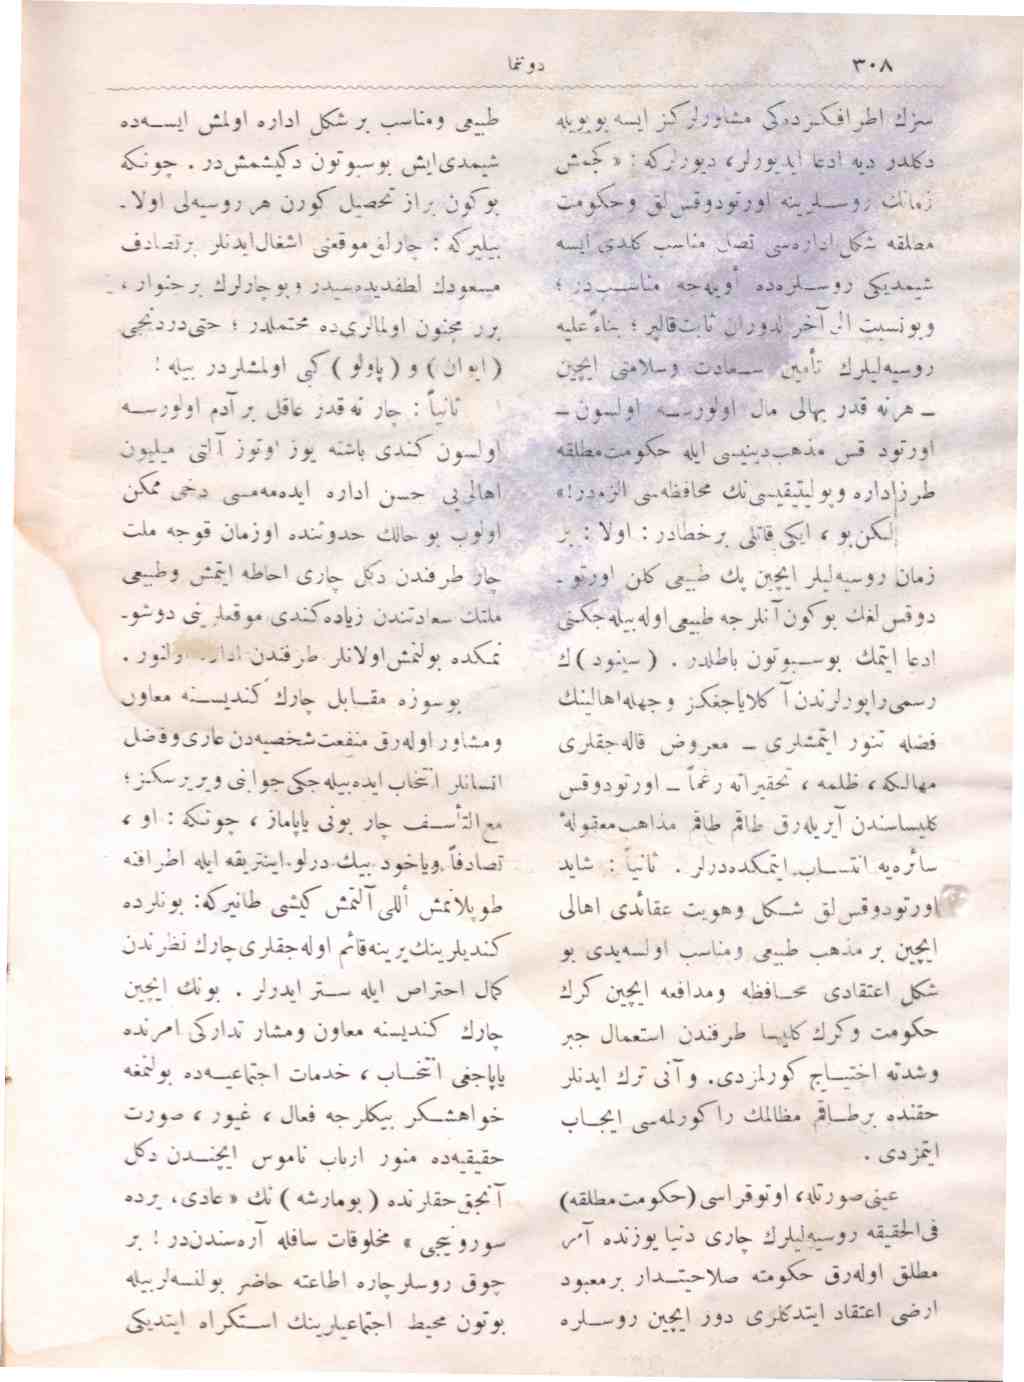 ٣٠٨
دوننما
سزك اطرافكزده‌كی مشاورلركیز ایسه بویویله
دكلدر دیه ادعا ایدیورلر، دیورلركه : « كچمش
زمانك روسلرینه اورتودوقس‌لق وحكومت
مطلقه شكل اداره‌سی نصل مناسب كلدی ایسه
شیمدیكی روسلره‌ده اویله‌جه مناسبدر ؛
وبونسبت الی آخر الدوران ثابت‌قالیر ؛ بناءً علیه
روسیه‌لیلرك تأمین سعادت وسلامتی ایچین
ـ هرنه قدر بهالی مال اولورسه اولسون ـ
اورتودقس مذهب‌دینیسی ایله حكومت‌مطلقه
طرزاداره وپولیتیقیسی‌نك محافظه‌سی الزمدر!»
لكن‌بو ، ایكی قاتلی برخطادر : اولا : بر
زمان روسیه‌لیلر ایچین پك طبیعی كلن اورتو-
دوقس‌لغك بوكون آنلرجه طبیعی‌اوله‌بیله‌جكنی
ادعا ایتمك بوسبوتون باطلدر . (سینود)ك
رسمی‌راپورلرندن آكلایاجغكز وجهله‌اهالینك
فضله تنور ایتمشلری ـ معروض قاله‌جقلری
مهالكه ، ظلمه ، تحقیراته رغماً ـ اورتودوقس
كلیساسندن آیریله‌رق طاقم طاقم مذاهب‌معقولهٔ
سائره‌یه انتساب ایتمكده‌درلر . ثانیاً : شاید
اورتودوقس‌لق شكل وهویت عقائدی اهالی
ایچین بر مذهب طبیعی ومناسب اولسه‌یدی بو
شكل اعتقادی محافظه ومدافعه ایچین كرك
حكومت وكرك كلیسا طرفندن استعمال جبر
وشدته احتیاج كورلمزدی. وآنی ترك ایدنلر
حقنده برطاقم مظالمك راكورلمه‌سی ایجاب
ایتمزدی .
عینی‌صورتله، اوتوقراسی (حكومت‌مطلقه)
فی‌الحقیقه روسیه‌لیلرك چاری دنیا یوزنده آمر
مطلق اوله‌رق حكومته صلاحیتدار برمعبود
ارضی اعتقاد ایتدكلری دور ایچین روسلره
طبیعی ومناسب بر شكل اداره اولمش ایسه‌ده
شیمدی‌ایش بوسبوتون دكیشمش‌در . چونكه
بوكون براز تحصیل كورن هر روسیه‌لی اولا-
بیلیركه : چارلق‌موقعنی اشغال‌ایدنلر برتصادف
مسعودك لطفدیده‌سیدر وبوچارلرك برخنوار ،
برر مجنون اولمالری‌ده محتملدر ؛ حتی‌دردنجی
(ایوان) و (پاولو) كبی اولمشلردر بیله !
ثانیاً : چار نه‌قدر عاقل بر آدم اولورسه
اولسون كندی باشنه یوز اوتوز آلتی میلیون
اهالی‌یی حسن اداره ایده‌مه‌مسی دخی ممكن
اولوب بو حالك حدوثنده اوزمان قوجه ملت
چار طرفندن دكل چاری احاطه ایتمش وطبیعی
ملتك سعادتندن زیاده‌كندی موقعلرینی دوشو-
نمكده بولنمش‌اولانلر طرفندن اداره اولنور .
بوسوزه مقابل چارك كندیسنه معاون
ومشاور اوله‌رق منفعت‌شخصیه‌دن عاری‌وفاضل
انسانلر انتخاب ایده‌بیله‌جكی‌جوابنی ویررسكز ؛
مع‌التأسف چار بونی یاپاماز ، چونكه : او ،
تصادفاً ویاخود بیك درلو اینتریقه ایله اطرافنه
طوپلانمش اللی‌آلتمش كیشی طانیركه: بونلرده
كندیلرینك‌یرینه‌قائم اوله‌جقلری‌چارك نظرندن
كمال احتراص ایله ستر ایدرلر . بونك ایچین
چارك كندیسنه معاون ومشار تداركی امرنده
یاپاجغی انتخاب ، خدمات اجتماعیه‌ده بولنمغه
خواهشكر بیكلرجه فعال ، غیور ، صورت
حقیقیه‌ده منور ارباب ناموس ایچندن دكل
آنجق‌حقلرنده (بومارشه)نك « عادی، یرده
سورونیجی » مخلوقات سافله آره‌سندن‌در ! بر
چوق روسلرچاره اطاعته حاضر بولنسه‌لربیله
بوتون محیط اجتماعیلرینك استكراه ایتدیكی